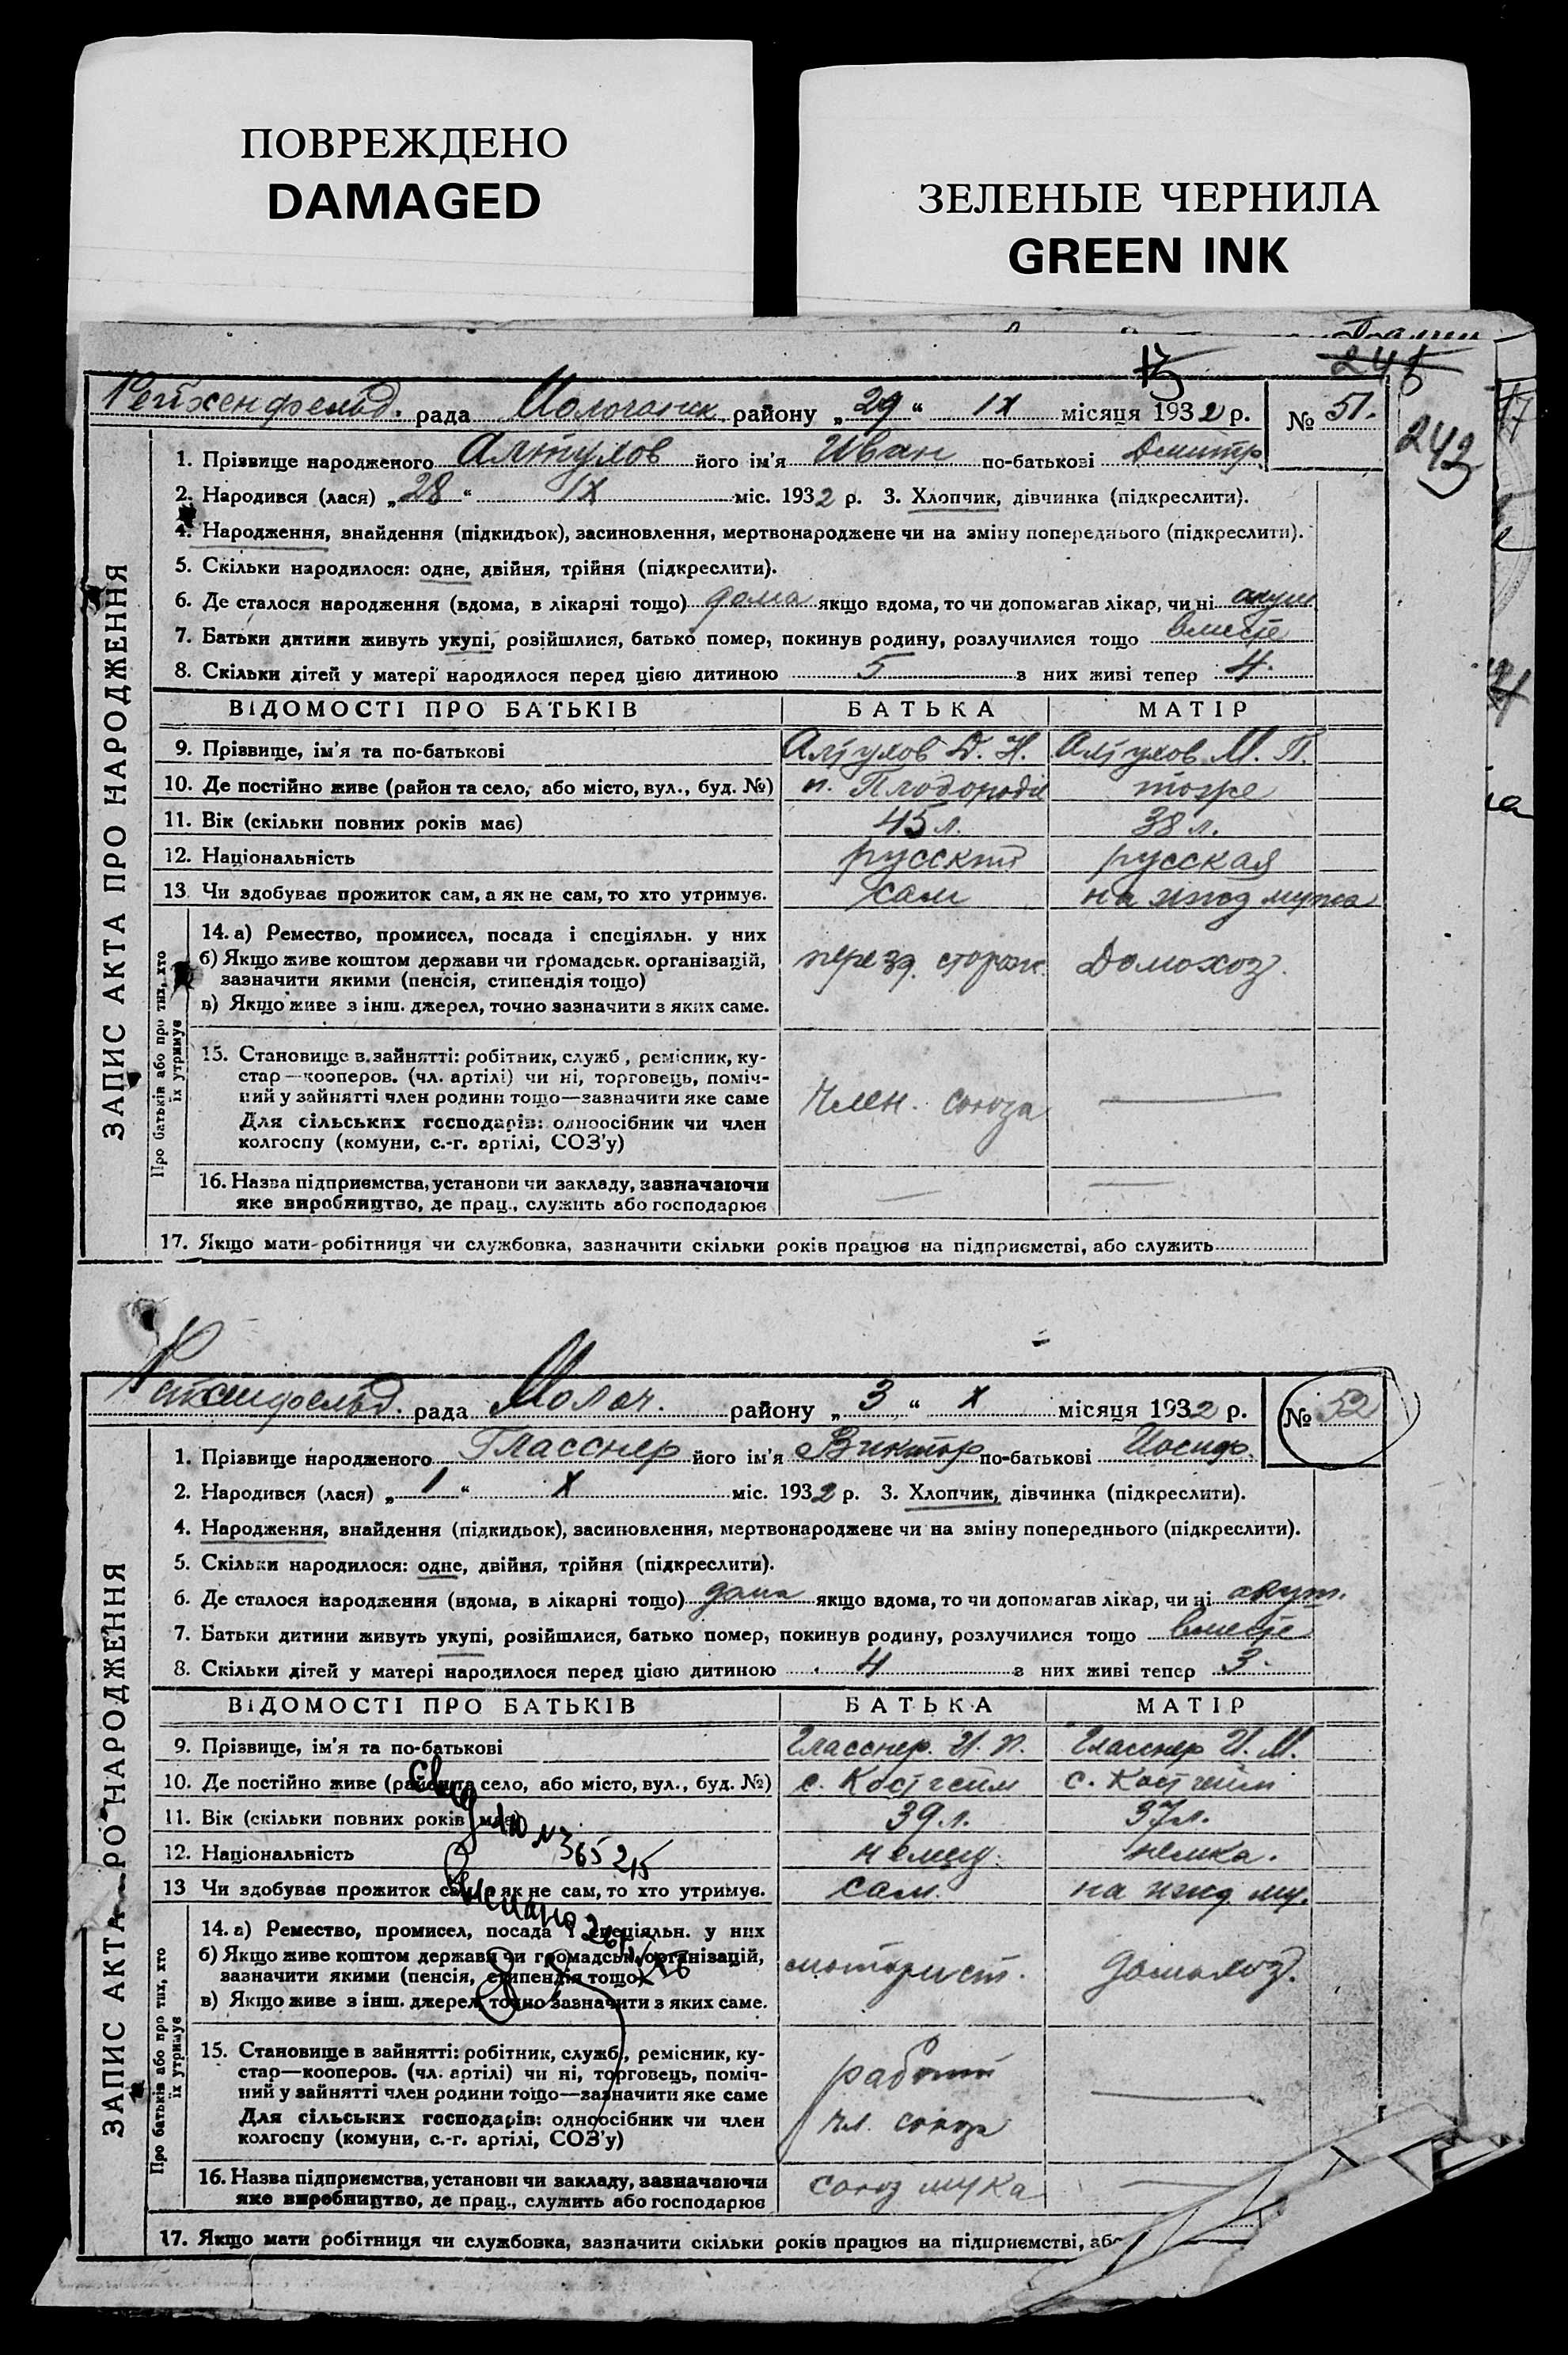 ПОВРЕЖДЕНО
DAMAGED
ЗЕЛЕНЫЕ ЧЕРНИЛА
GREEN INK
243
Рейхенфельд. рада Молочанск. району „29“ IX місяця 1932 р. № 51.
ЗАПИС АКТА ПРО НАРОДЖЕННЯ
1. Прізвище народженого Алтулов його ім'я Иван по-батькові Дмитр.
2. Народився (лася) „28“ IX міс. 1932 р. 3. Хлопчик, дівчинка (підкреслити).
4. Народження, знайдення (підкидьок), засиновлення, мертвонароджене чи на зміну попереднього (підкреслити).
5. Скільки народилося: одне, двійня, трійня (підкреслити).
6. Де сталося народження (вдома, в лікарні тощо) дома якщо вдома, то чи допомагав лікар, чи ні акуш.
7. Батьки дитини живуть укупі, розійшлися, батько помер, покинув родину, розлучилися тощо вместе
8. Скільки дітей у матері народилося перед цією дитиною 5 з них живі тепер 4.
ВІДОМОСТІ ПРО БАТЬКІВ БАТЬКА МАТІР
9. Прізвище, ім'я та по-батькові Алтулов Д. Н. Алтулов М. П.
10. Де постійно живе (район та село, або місто, вул., буд. №) п. Плодородие тоже
11. Вік (скільки повних років має) 45 л. 38 л.
12. Національність русский русская
13 Чи здобуває прожиток сам, а як не сам, то хто утримує. сам на ижд мужа
Про батьків або про тих, хто їх утримує
14. а) Ремество, промисел, посада і спеціяльн. у них
б) Якщо живе коштом держави чи громадськ. організацій,
зазначити якими (пенсія, стипендія тощо)
в) Якщо живе з інш. джерел, точно зазначити з яких саме.
перезд. сторож Домохоз.
15. Становище в зайнятті: робітник, служб, ремісник, ку-
стар—кооперов. (чл. артілі) чи ні, торговець, поміч-
ний у зайнятті член родини тощо—зазначити яке саме
Для сільських господарів: одноосібник чи член
колгоспу (комуни, с.-г. артілі, СОЗ'у)
член. союза
16. Назва підприємства, установи чи закладу, зазначаючи
яке виробництво, де прац., служить або господарює
17. Якщо мати-робітниця чи службовка, зазначити скільки років працює на підприємстві, або служить
рада Молоч. району „3“ X місяця 1932 р. № 52
ЗАПИС АКТА ПРО НАРОДЖЕННЯ
1. Прізвище народженого Гласснер його ім'я Виктор по-батькові Иосиф.
2. Народився (лася) „1“ X міс. 1932 р. 3. Хлопчик, дівчинка (підкреслити).
4. Народження, знайдення (підкидьок), засиновлення, мертвонароджене чи на зміну попереднього (підкреслити).
5. Скільки народилося: одне, двійня, трійня (підкреслити).
6. Де сталося народження (вдома, в лікарні тощо) дома якщо вдома, то чи допомагав лікар, чи ні акуш.
7. Батьки дитини живуть укупі, розійшлися, батько помер, покинув родину, розлучилися тощо вместе
8. Скільки дітей у матері народилося перед цією дитиною 4 з них живі тепер 3.
ВІДОМОСТІ ПРО БАТЬКІВ БАТЬКА МАТІР
9. Прізвище, ім'я та по-батькові Гласснер. И. П. Гласснер И. М.
10. Де постійно живе (район та село, або місто, вул., буд. №) с. Костгейм с. Костгейм
11. Вік (скільки повних років має) 39 л. 37 л.
12. Національність немец. немка.
13 Чи здобуває прожиток сам, а як не сам, то хто утримує. сам. на ижд му.
№ 365215
Про батьків або про тих, хто їх утримує
14. а) Ремество, промисел, посада і спеціяльн. у них
б) Якщо живе коштом держави чи громадськ. організацій,
зазначити якими (пенсія, стипендія тощо)
в) Якщо живе з інш. джерел, точно зазначити з яких саме.
моторист. домохоз.
15. Становище в зайнятті: робітник, служб., ремісник, ку-
стар—кооперов. (чл. артілі) чи ні, торговець, поміч-
ний у зайнятті член родини тощо—зазначити яке саме
Для сільських господарів: одноосібник чи член
колгоспу (комуни, с.-г. артілі, СОЗ'у)
рабочий
чл. союза
16. Назва підприємства, установи чи закладу, зазначаючи
яке виробництво, де прац., служить або господарює
союз мука
17. Якщо мати робітниця чи службовка, зазначити скільки років працює на підприємстві, або